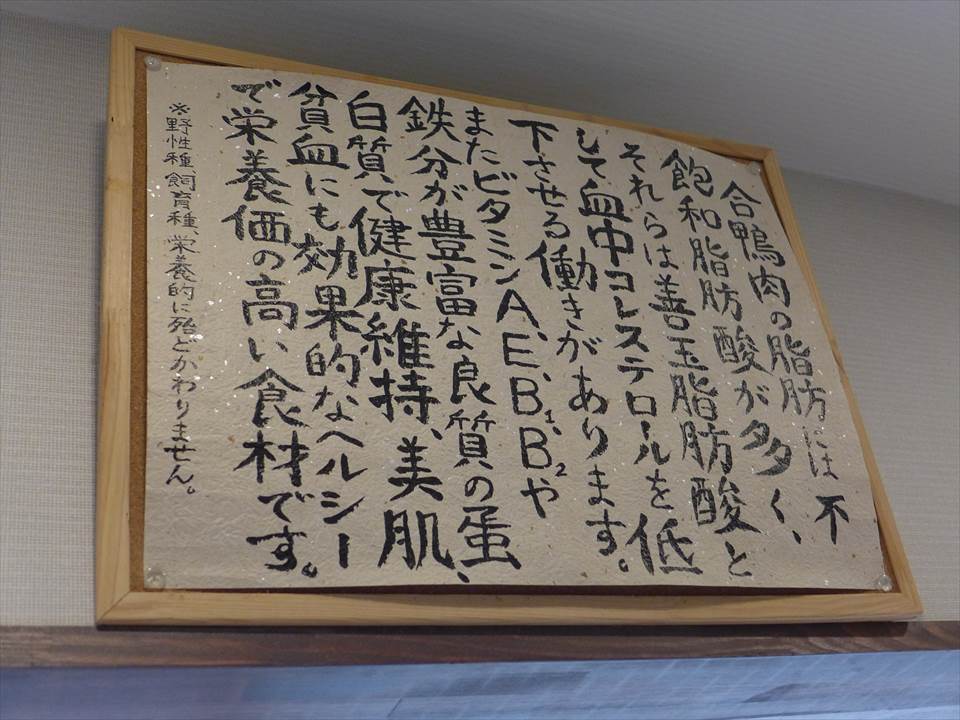 合鴨肉の脂肪には不
飽和脂肪酸が多く、
それらは善玉脂肪酸と
して血中コレステロールを低
下させる働きがあります。
またビタミンA、E、B1、B2や
鉄分が豊富な良質の蛋
白質で健康維持、美肌、
貧血にも効果的なヘルシー
で栄養価の高い食材です。
※野性種、飼育種、栄養的に殆どかわりません。